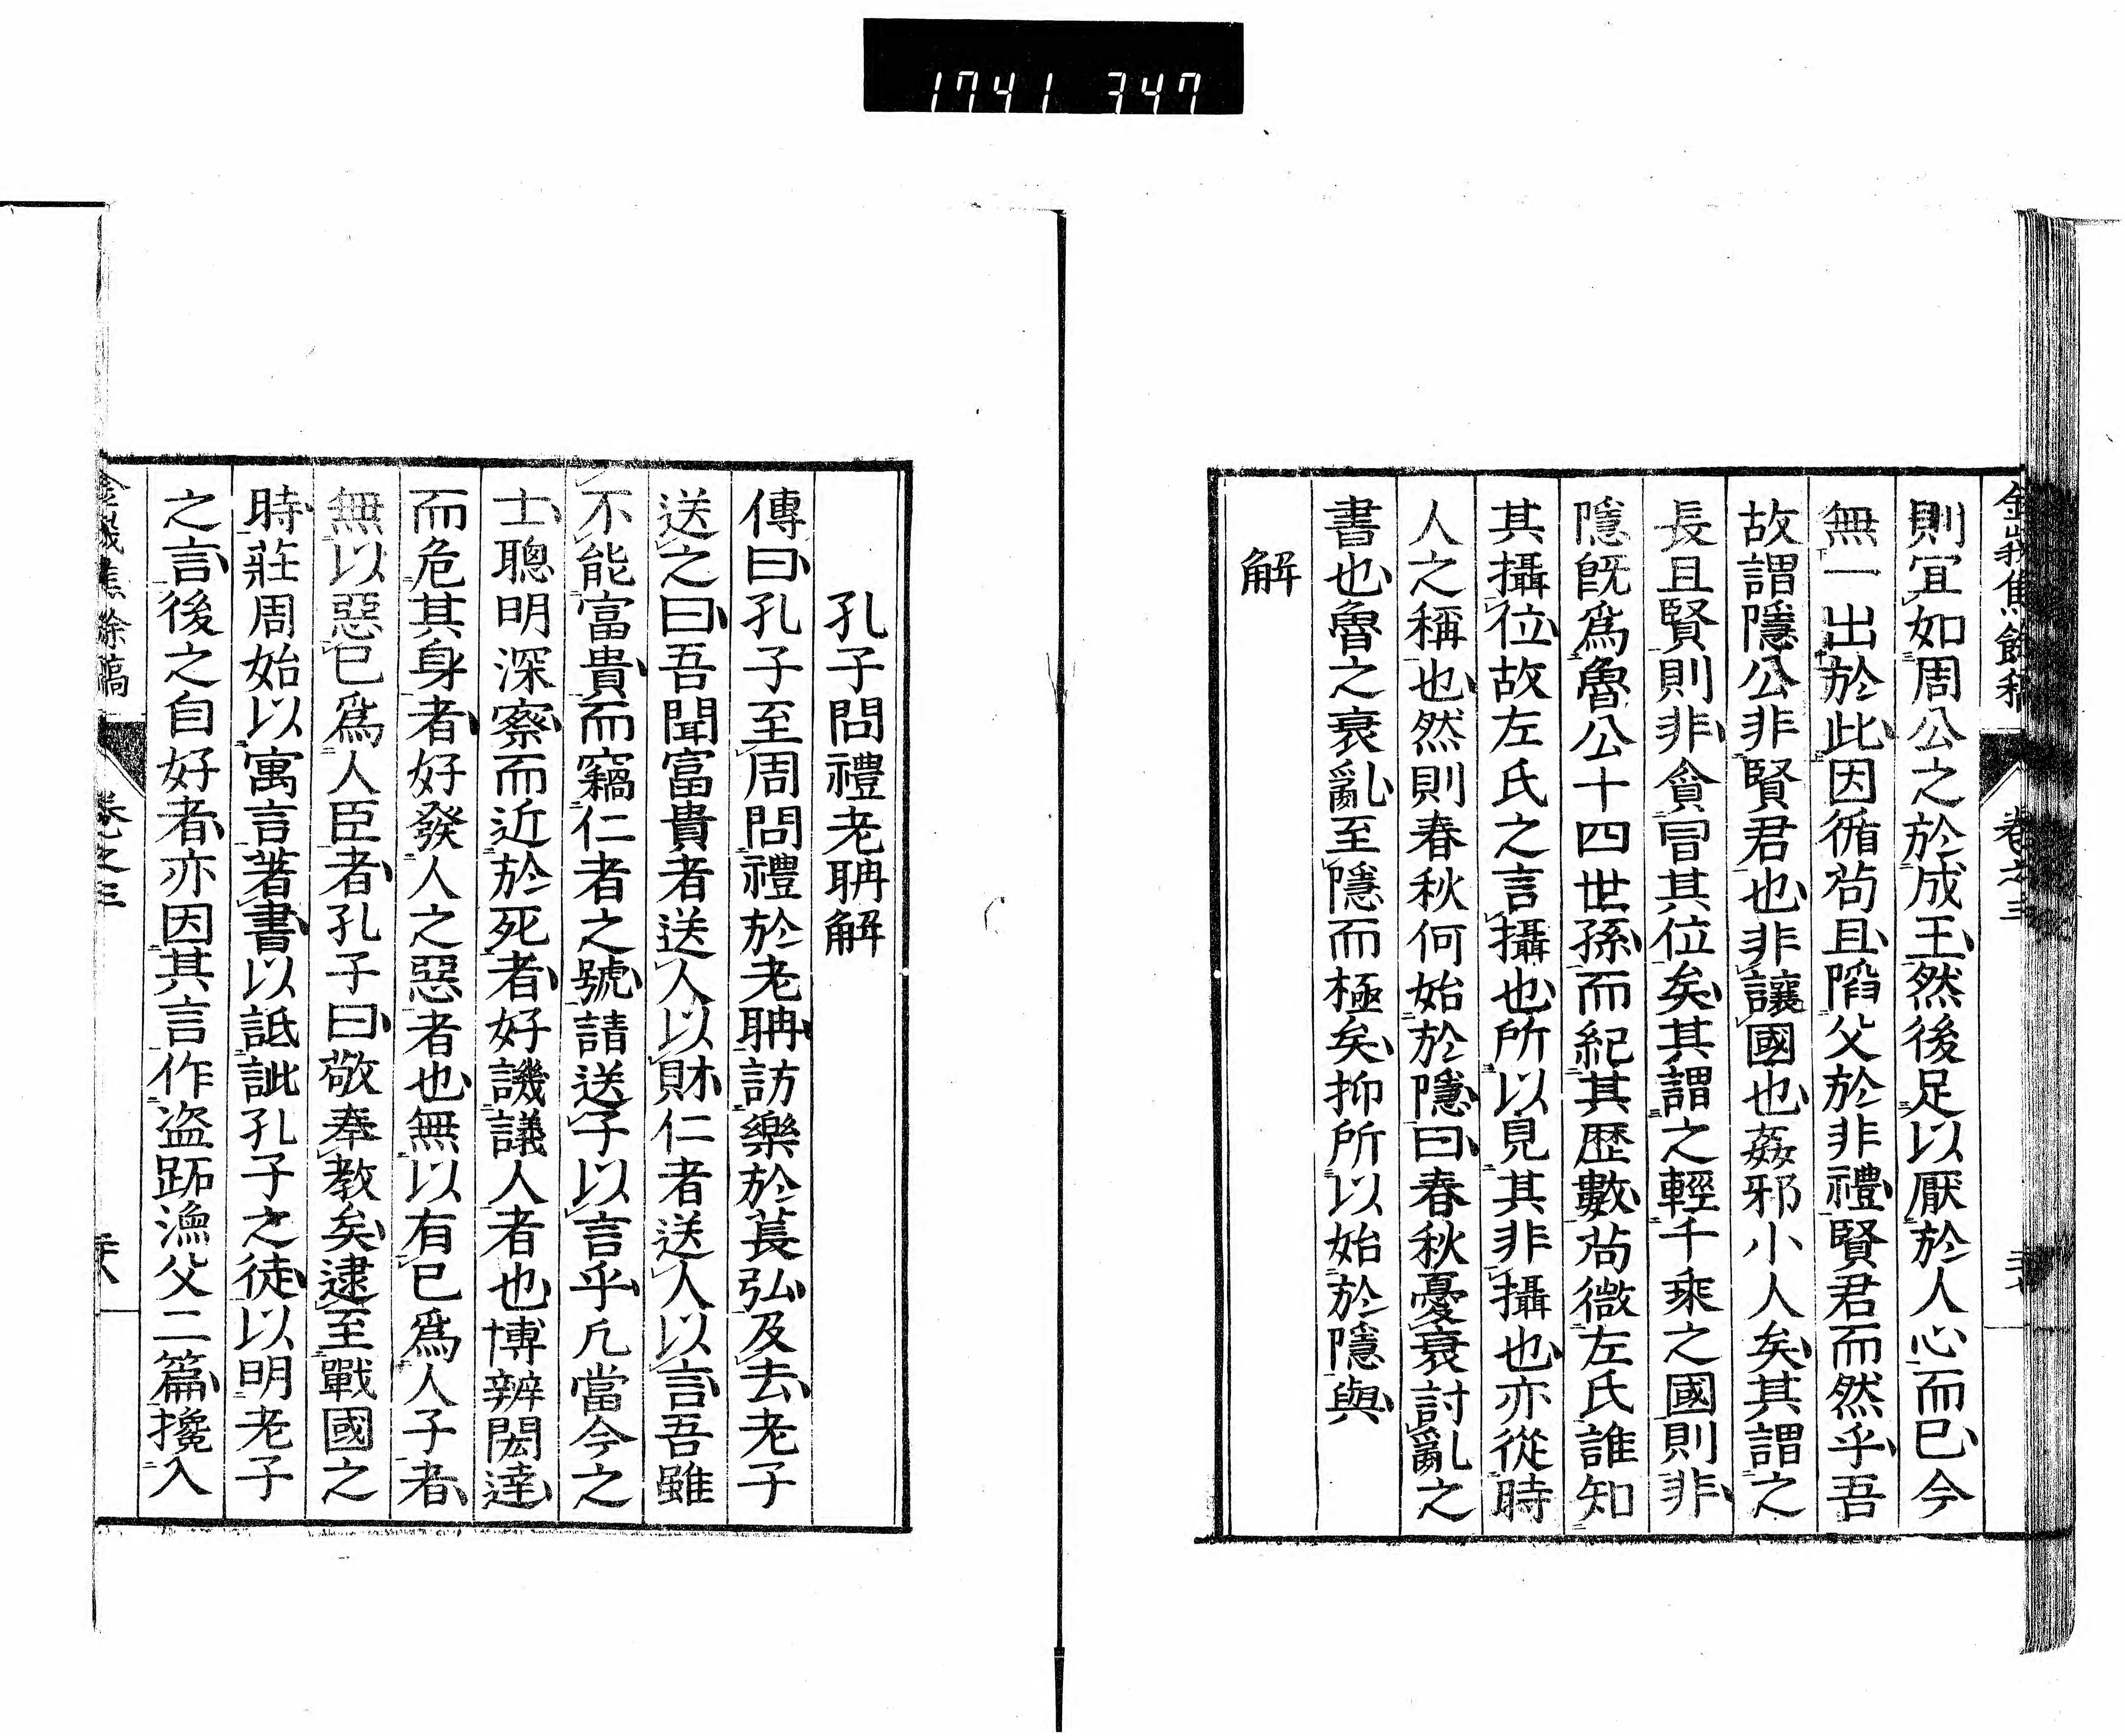 1741 347
則宜如周公之於成王然後足以厭於人心而已今
無一出於此因循苟且陷父於非禮賢君而然乎吾
故謂隱公非賢君也非讓國也姦邪小人矣其謂之
長且賢則非貪冒其位矣其謂之輕千乘之國則非
隱旣爲魯公十四世孫而紀其歷數苟微左氏誰知
其攝位故左氏之言攝也所以見其非攝也亦從時
人之稱也然則春秋何始於隱曰春秋憂衰討亂之
書也魯之衰亂至隱而極矣抑所以始於隱與
解
孔子問禮老聃解
傳曰孔子至周問禮於老聃訪樂於萇弘及去老子
送之曰吾聞富貴者送人以財仁者送人以言吾雖
不能富貴而竊仁者之號請送子以言乎凡當今之
士聰明深察而近於死者好譏議人者也博辨閎達
而危其身者好發人之惡者也無以有已爲人子者
無以惡已爲人臣者孔子曰敬奉教矣逮至戰國之
時莊周始以寓言著書以詆訿孔子之徒以明老子
之言後之自好者亦因其言作盜跖漁父二篇攙入
卷之三